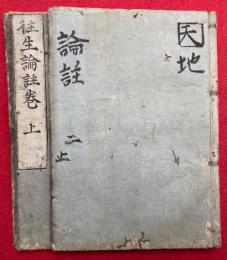 天地
論註
二
上
往生論註巻
上